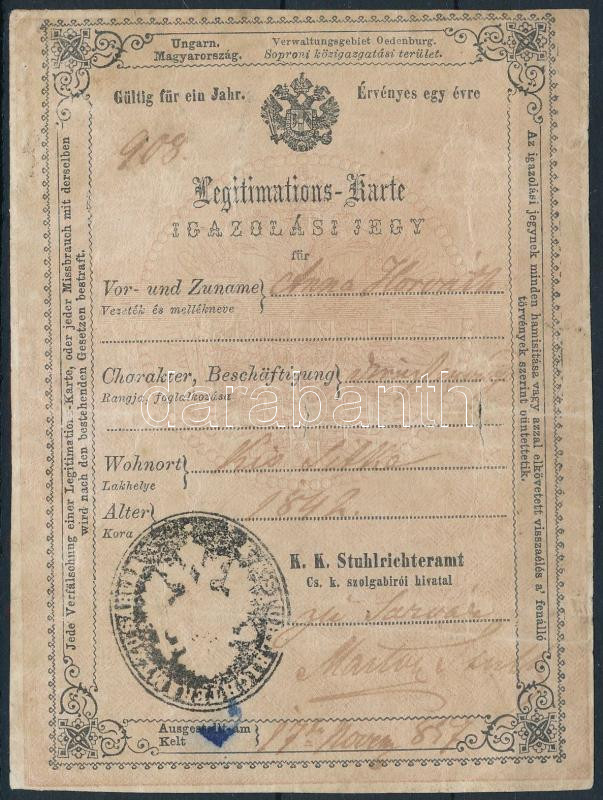 Ungarn.
Magyarország.
Verwaltungsgebiet Oedenburg.
Soproni közigazgatási terület.
Gültig für ein Jahr.
Érvényes egy évre
908.
Legitimations-Karte
IGAZOLÁSI JEGY
für
Vor- und Zuname} Anna Horváth
Vezeték és mellékneve
Charakter, Beschäftigung}
Rangja, foglalkozása
darabanth
Wohnort}
Lakhelye
Alter} 1842.
Kora
K. K. Stuhlrichteramt
Cs. k. szolgabirói hivatal
zu Sárvár
Ausgestellt am
Kelt
17te 857
Jede Verfälschung einer Legitimations-Karte, oder jeder Missbrauch mit derselben
wird nach den bestehenden Gesetzen bestraft.
Az igazolási jegynek minden hamisitása vagy azzal elkövetett visszaélés a' fenálló
törvények szerint büntettetik.